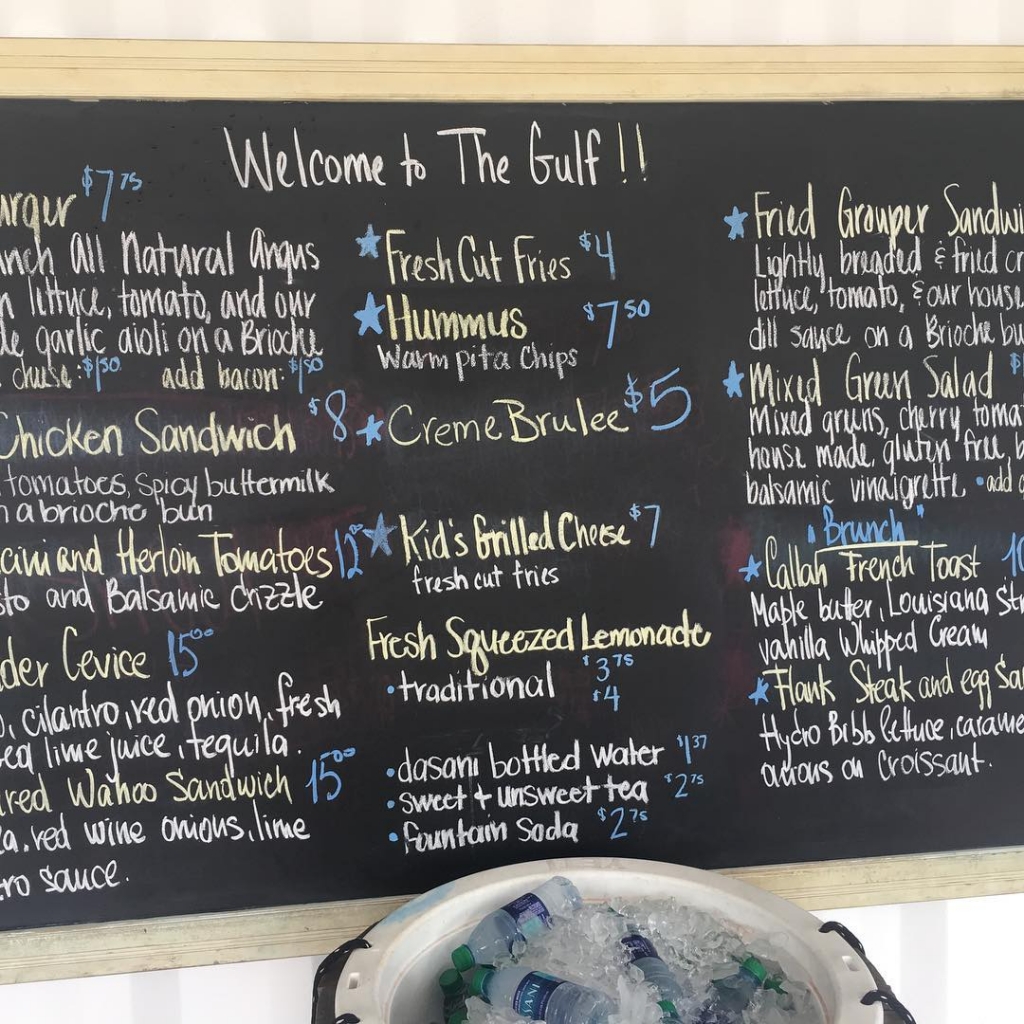 Welcome to The Gulf!!
$7.75
All Natural Angus
lettuce, tomato, and our
garlic aioli on a Brioche
$1.50 add bacon: $1.50
Chicken Sandwich $8
tomatoes, spicy buttermilk
a brioche bun
and Herloin Tomatoes 12.00
and Balsamic drizzle
Cevice 15.00
cilantro, red onion, fresh
lime juice, tequila.
Wahoo Sandwich 15.00
red wine onions, lime
sauce.
Fresh Cut Fries $4
Hummus $7.50
Warm pita chips
Creme Brulee $5
Kid's Grilled Cheese $7
fresh cut fries
Fresh Squeezed Lemonade
• traditional $3.75
$4
• dasani bottled water $1.37
• sweet + unsweet tea $2.75
• fountain soda $2.75
Fried Grouper
Lightly breaded & fried
lettuce, tomato, & our house
dill sauce on a Brioche
Mixed Green Salad
Mixed greens, cherry
house made, gluten free,
balsamic vinaigrette • add
"Brunch"
Callah French Toast
Maple butter, Louisiana
vanilla Whipped Cream
Flank Steak and egg
Hydro Bibb lettuce,
onions on Croissant.